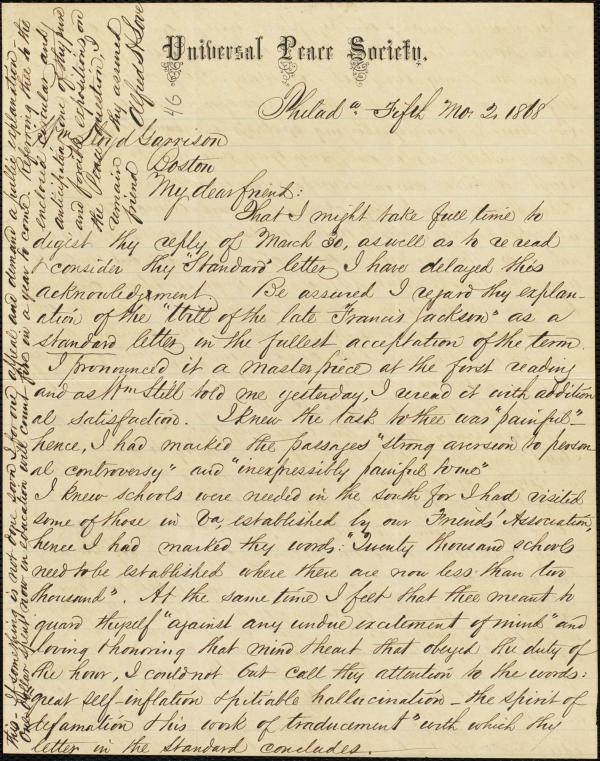 Universal Peace Society.
46
Philad.a Fifth Mo. 2, 1868
Wm Lloyd Garrison
Boston
My dear friend:
That I might take full time to
digest thy reply of March 30, as well as to re read
& consider thy "Standard" letter, I have delayed this
acknowledgment. Be assured I regard thy explan-
ation of the "Will of the late Francis Jackson" as a
standard letter in the fullest acceptation of the term.
I pronounced it a masterpiece at the first reading
and as Wm Still told me yesterday, I reread it with addition
al satisfaction. I knew the task to thee was "painful"—
hence, I had marked the passages "strong aversion to person-
al controversy" and "inexpressibly painful to me"
I knew schools were needed in the south for I had visited
some of those in Va, established by our Friends' Association,
hence I had marked thy words: "Twenty thousand schools
need to be established where there are now less than two
thousand". At the same time I felt that thee meant to
guard thyself "against any undue excitement of mind" and
loving & honoring that mind & heart that obeyed the duty of
the hour, I could not but call thy attention to the words:
great self-inflation & pitiable hallucination — the spirit of
defamation & his work of traducement" with which thy
letter in the Standard concludes.
this. If something is not done soon I for one appeal and demand a public explanation
One dollar spent now in education will count five in a year to come. Referring thee to the
enclosed circular and
anticipating one of thy pure
and forcible expositions on
the Peace question, I
remain thy assured
friend Alfred H. Love